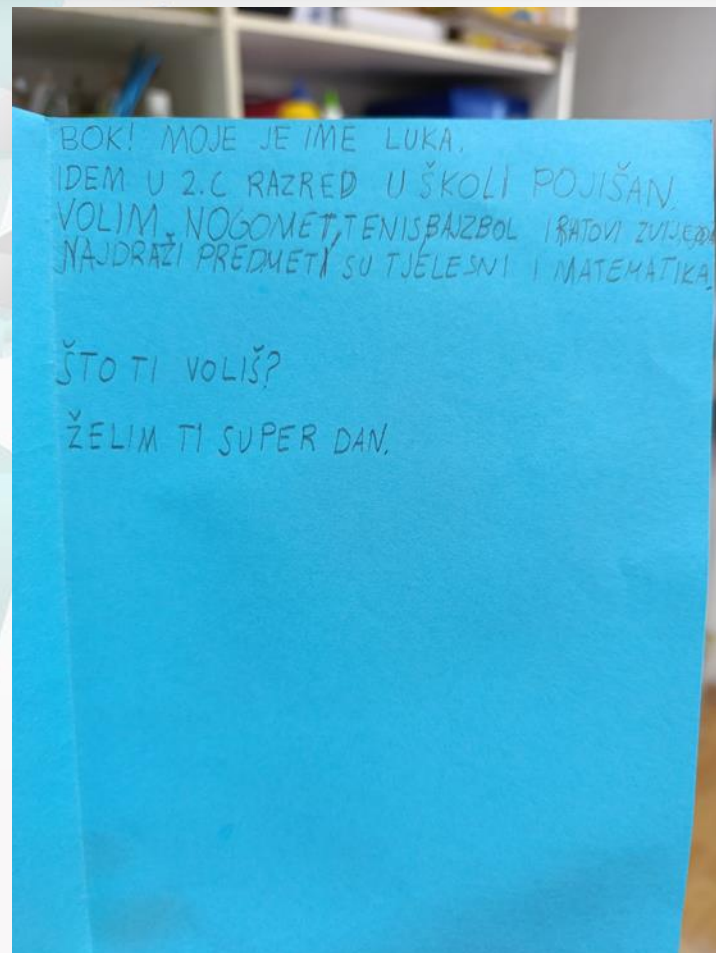 BOK! MOJE JE IME LUKA.
IDEM U 2.C RAZRED U ŠKOLI POJIŠAN.
VOLIM, NOGOMET, TENIS, BAJZBOL I RATOVI ZVIJEZDA
NAJDRAŽI PREDMETI SU TJELESNI I MATEMATIKA.
ŠTO TI VOLIŠ?
ŽELIM TI SUPER DAN.